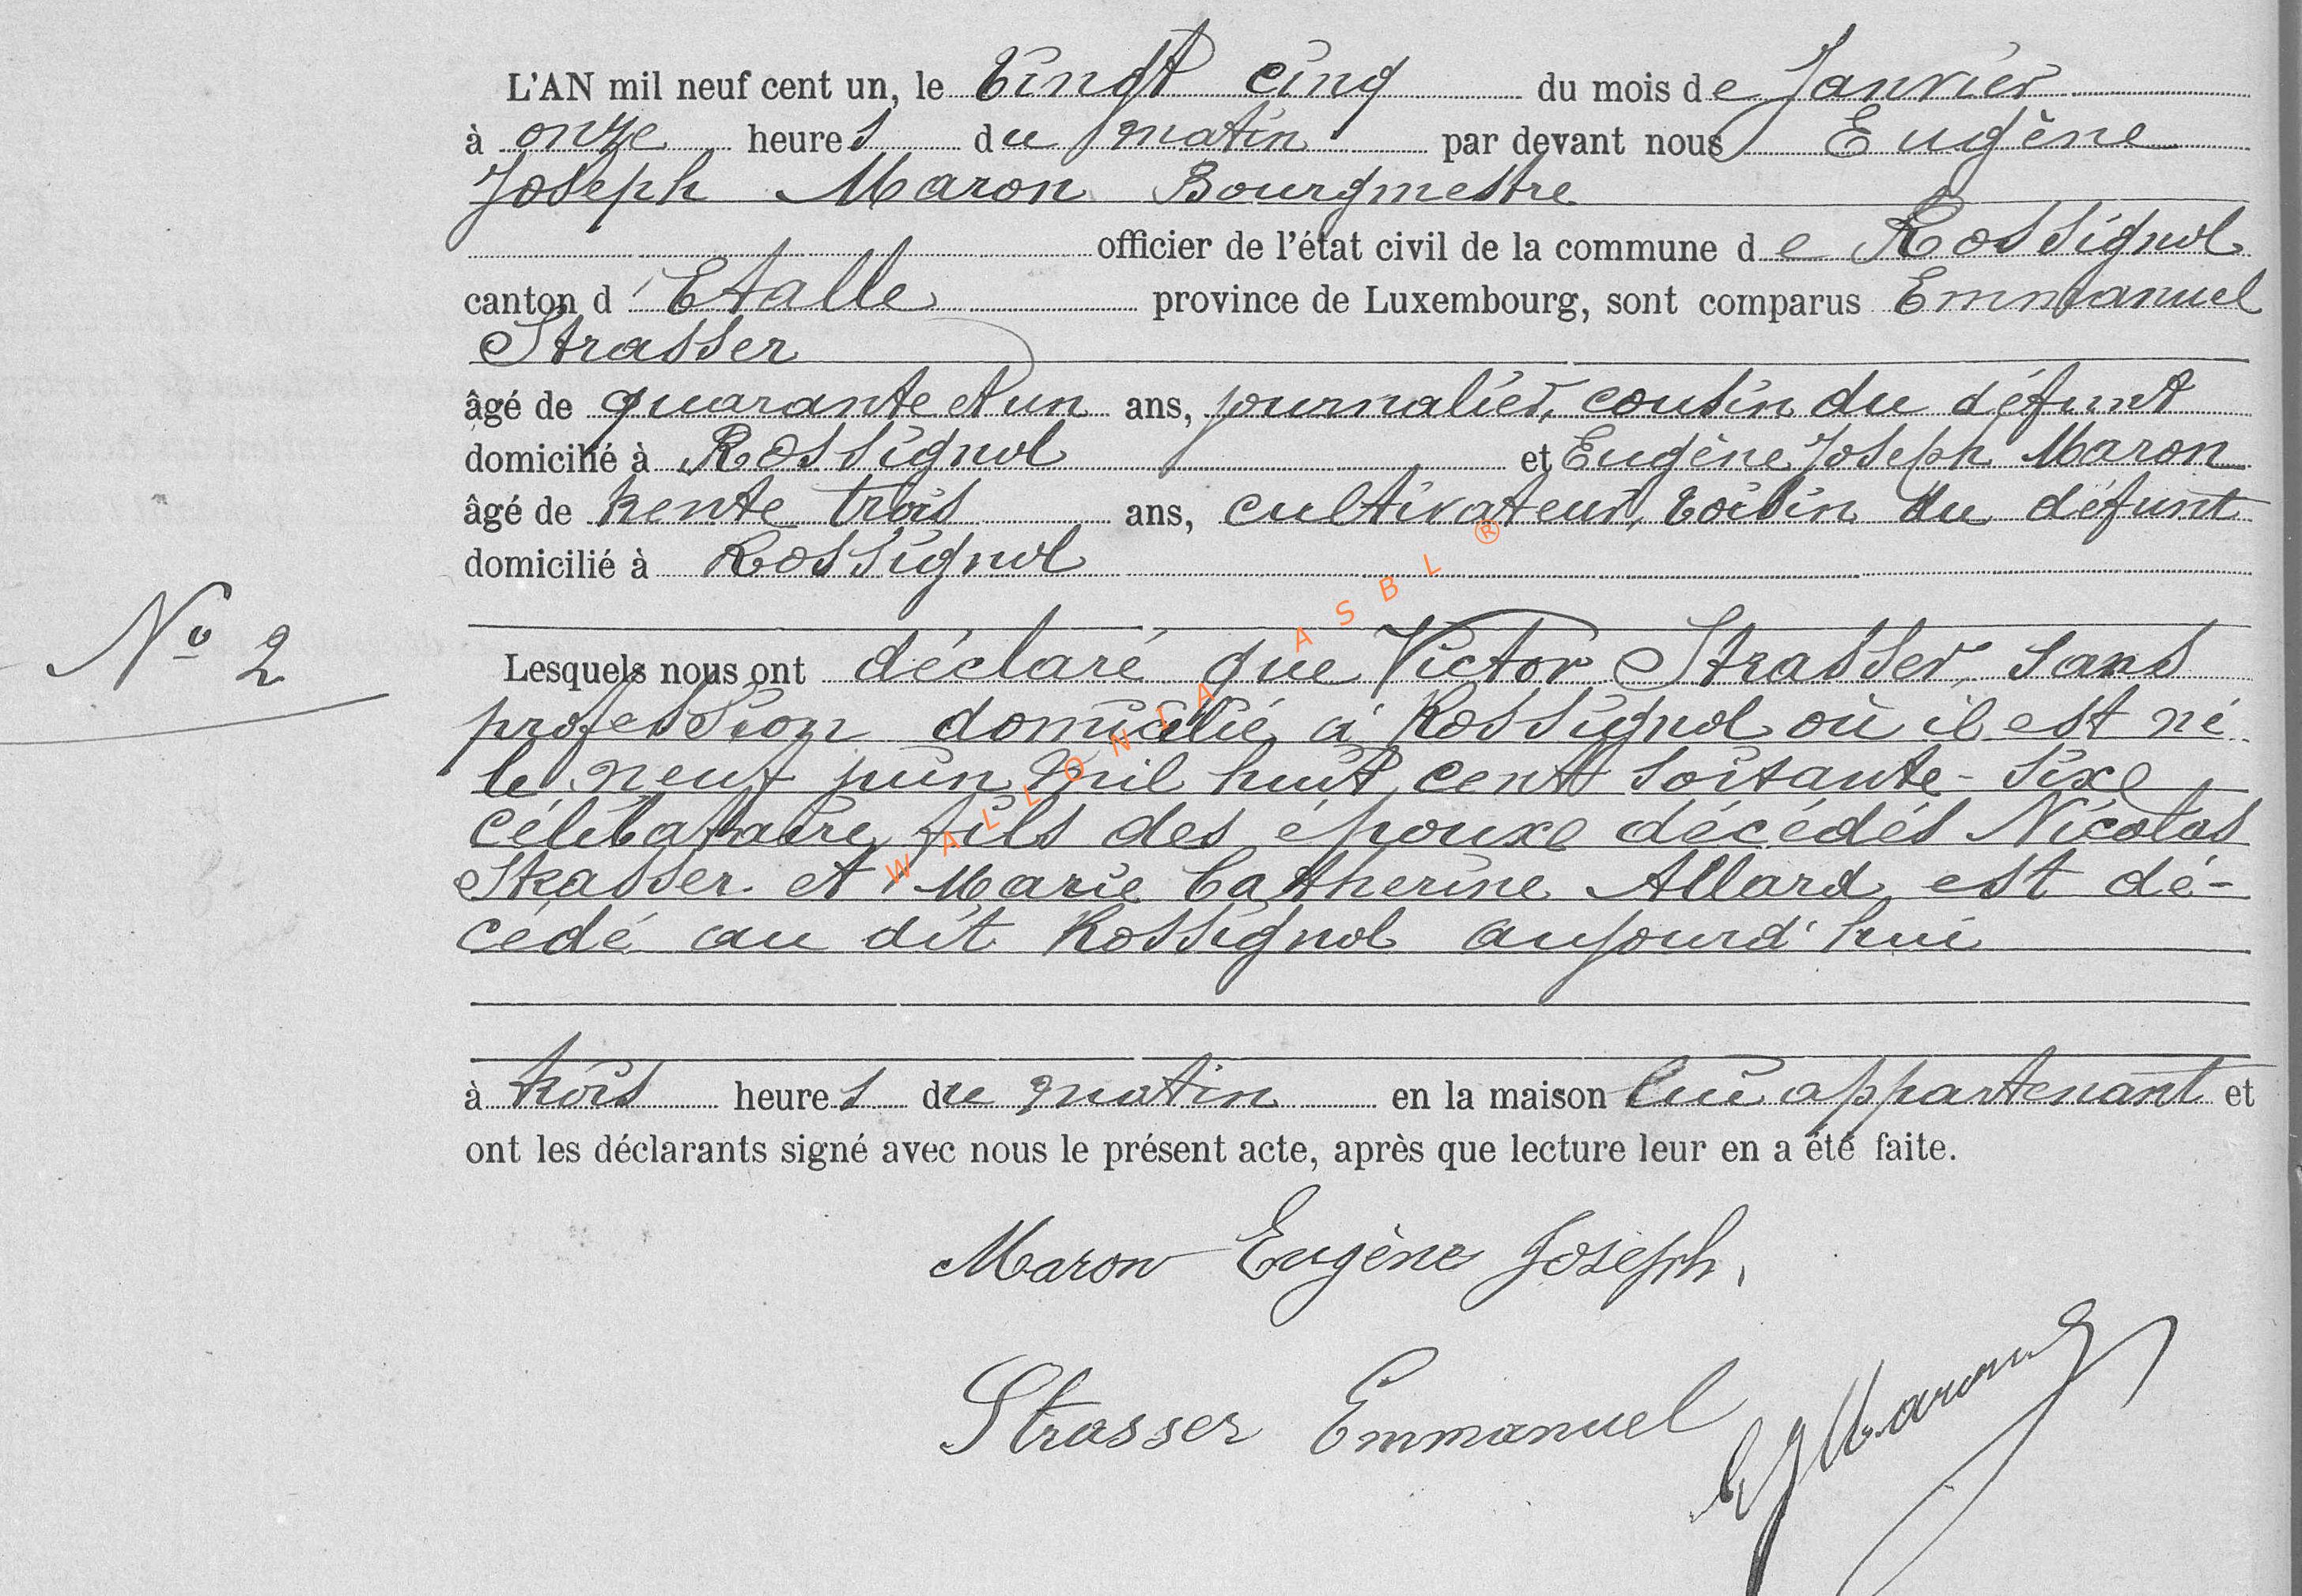 L'AN mil neuf cent un, le vingt cinq du mois de Janvier
à onze heures du matin par devant nous Eugène
Joseph Maron Bourgmestre
officier de l'état civil de la commune de Rossignol
canton d'Etalle province de Luxembourg, sont comparus Emmanuel
Strasser
âgé de quarante et un ans, journalier, cousin du défunt
domicilié à Rossignol et Eugène Joseph Maron
âgé de trente trois ans, cultivateur, voisin du défunt
domicilié à Rossignol
N° 2
Lesquels nous ont déclaré que Victor Strasser, sans
profession domicilié à Rossignol où il est né
le neuf juin mil huit cent soixante-six
célibataire fils des époux décédés Nicolas
Strasser et Marie Catherine Allard est dé-
cédé au dit Rossignol aujourd'hui
à trois heures du matin en la maison lui appartenant et
ont les déclarants signé avec nous le présent acte, après que lecture leur en a été faite.
Maron Eugène Joseph,
Strasser Emmanuel
EJMaron
WALLONIA ASBL ®